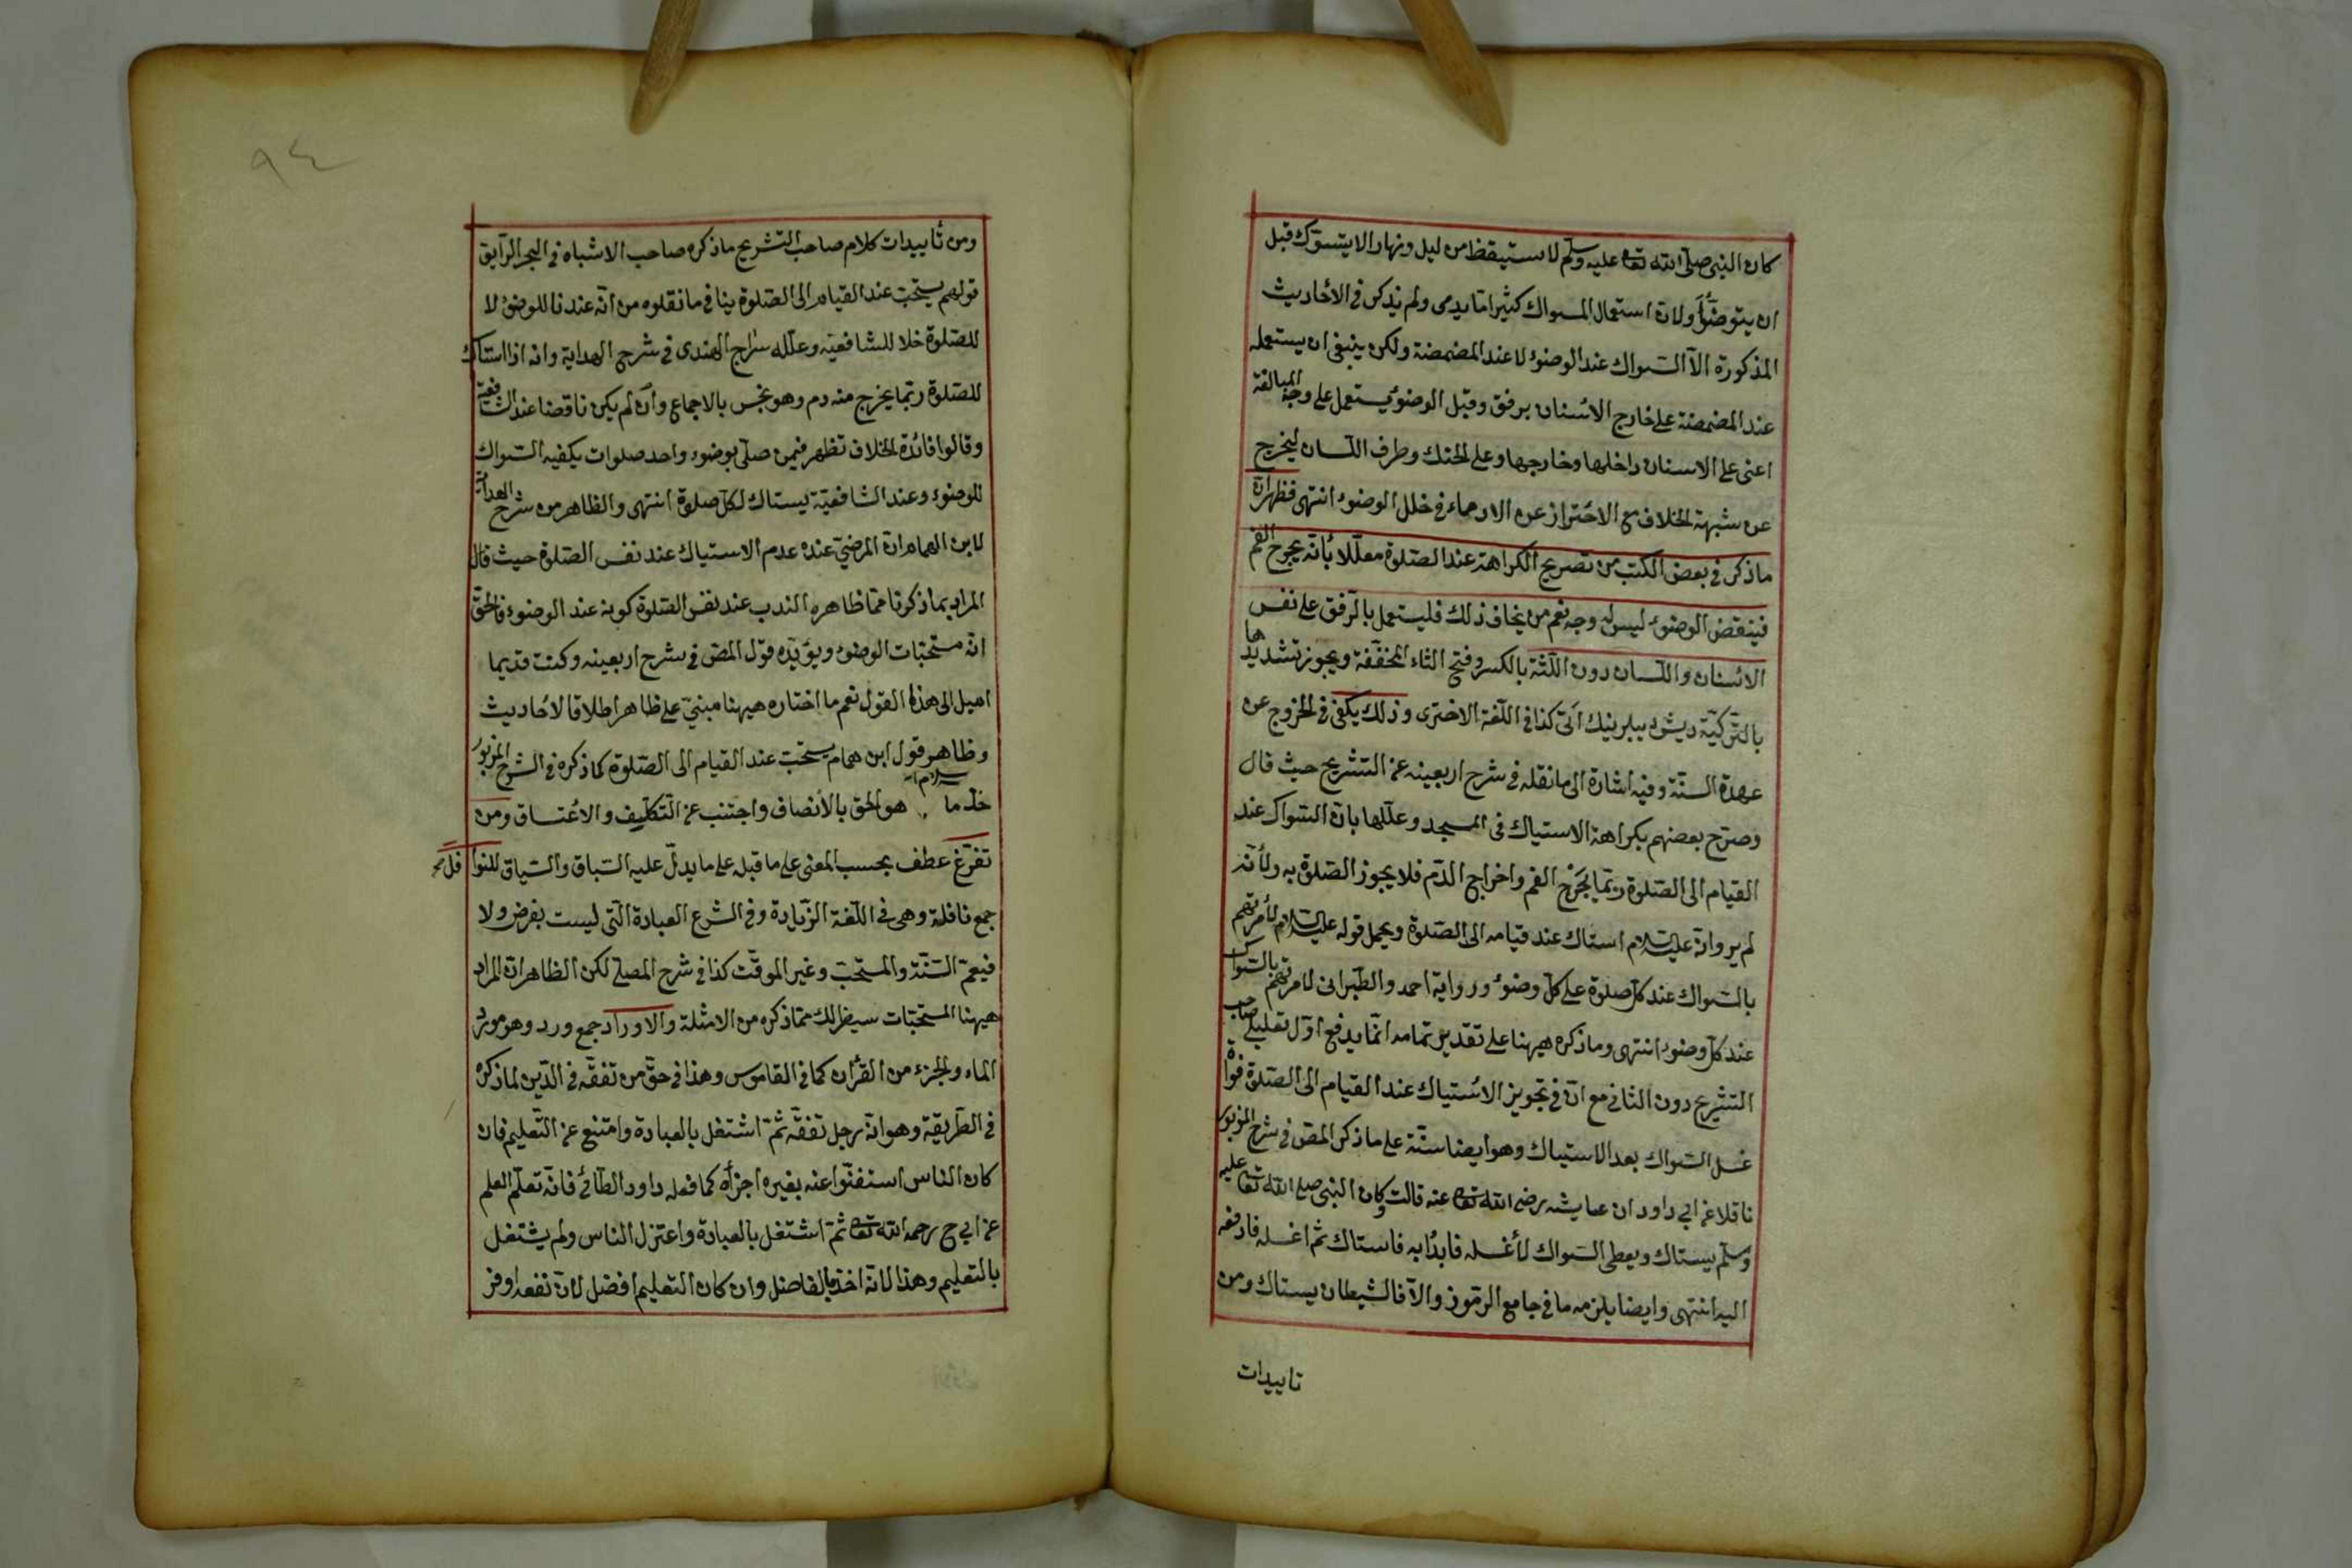 كان النبى صلى الله تعا عليه وسلم لا ستيقظ من ليل ونهار الا يتسوّك قبل
ان يتوضّأ ولان استعمال المسواك كثيرا ما يدمى ولم يذكر فى الأحاديث
المذكورة الّا السّواك عند الوضوء لا عند المضمضة ولكن ينبغى ان يستعمله
عند المضمضة على خارج الأسنان برفق وقبل الوضوء يستعمل على وجه المبالغة
اعنى على الاسنان داخلها وخارجها وعلى الحنك وطرف اللّسان ليخرج
عن شبهة الخلاف مع الاحتراز عن الادماء فى خلل الوضوء انتهى فظهر انّ
ما ذكر فى بعض الكتب من تصريح الكراهة عند الصّلوة معلّلا بأنّه يجرح الفم
فينقض الوضوء ليس له وجه نعم من يخاف ذلك فليستعمل بالرّفق على نفس
الأسنان واللّسان دون اللّثة بالكسر وفتح الثاء المخفّفة ويجوز تشديدها
بالتّركيّة ديش ديبلرينك اتى كذا فى اللّغة الاخترى وذلك يكفى فى الخروج عن
عهدة السنّة وفيه اشارة الى ما نقله فى شرح اربعينه عن التشريح حيث قال
وصرّح بعضهم بكراهة الاستياك فى المسجد وعلّلها بانّ السّواك عند
القيام الى الصّلوة ربّما يجرح الفم واخراج الدّم فلا يجوز الصّلوة به ولأنّه
لم يرو انّه عليه السّلام استاك عند قيامه الى الصّلوة ويحمل قوله عليه السّلام لأمرتهم
بالسّواك عند كلّ صلوة على كلّ وضوء ورواية احمد والطّبرانى لامرتهم بالسّواك
عند كلّ وضوء انتهى وما ذكره هيهنا على تقدير تمامه انّما يدفع اوّل تعليلى صاحب
التشريح دون الثانى مع انّ فى تجويز الأستياك عند القيام الى الصّلوة فواة
غسل السّواك بعد الاستياك وهو ايضا سنّة على ما ذكر المصّ فى شرح المزبور
ناقلا عن ابى داود ان عايشه رضى الله تعا عنه قالت وكان النبى صلى الله تعا عليه
وسلّم يستاك ويعطى السّواك لأغسله فابدأ به فاستاك ثم اغسله فادفعه
اليه انتهى وايضا يلزمه ما فى جامع الرّموز والّا فالشيطان يستاك ومن
تاييدات
٩٤
ومن تأييدات كلام صاحب التّشريح ما ذكره صاحب الاشباه فى البحر الرّايق
قولهم يستحبّ عند القيام الى الصّلوة ينافى ما نقلوه من انّه عندنا للوضوء لا
للصّلوة خلا للشافعيّه وعلّله سراج الهندى فى شرح الهداية وانه اذا استاك
للصّلوة ربّما يخرج منه دم وهو نجس بالاجماع وأن لم يكن ناقضا عند الشافعيّة
وقالوا فائدة الخلاف تظهر فيمن صلّى بوضوء واحد صلوات يكفيه السّواك
للوضوء وعند الشافعيّة يستاك لكلّ صلوة انتهى والظاهر من شرح الهداية
لابن الهمام انّ المرضىّ عنده عدم الاستياك عند نفس الصّلوة حيث قال
المراد بما ذكرنا ممّا ظاهره الندب عند نفس الصّلوة كونه عند الوضوء فالحقّ
انّه مستحبّات الوضوء ويؤيّده قول المصّ فى شرح اربعينه وكنت قديما
اميل الى هذا القول نعم ما اختاره هيهنا مبنىّ على ظاهر اطلاق الأحاديث
وظاهر قول ابن همام يستحبّ عند القيام الى الصّلوة كما ذكره فى الشرح المزبور
خذ ما هو الحق بالأنصاف واجتنب عن التّكليف والاعتساق ومن
تفرّغ عطف بحسب المعنى على ما قبله على ما يدلّ عليه السّباق والسّياق للنوا فل
جمع نافلة وهى فى اللّغة الزّيادة وفى الشّرع العبادة الّتى ليست بفرض ولا
فيعمّ السّنّة والمستحبّ وغير الموقّت كذا فى شرح المصلّى لكن الظاهر انّ المراد
هيهنا المستحبّات سيظهر لك ممّا ذكره من الامثلة والاوراد جمع ورد وهو مورد
الماء والجزء من القرأن كما فى القاموس وهذا فى حقّ من تفقّه فى الدّين لما ذكره
فى الطّريقة وهو انّه رجل تفقّه ثمّ اشتغل بالعبادة وامتنع عن التّعليم فان
كان الناس استغنوا عنه بغيره اجزأه كما فعله داود الطّائى فانّه تعلّم العلم
عن ابى ح رحمه الله تعا ثمّ اشتغل بالعبادة واعتزل الناس ولم يشتغل
بالتعليم وهذا لانّه اخذ بالفاضل وان كان التعليم افضل لانّ نفعه اوفر